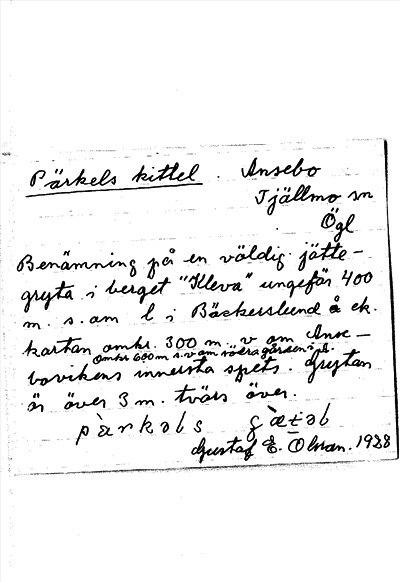 Pärkels kittel. Ansebo
Tjällmo sn
Ögl
Benämning på en väldig jätte-
gryta i berget "Kleva" ungefär 400
m. s.om l i Bäckerslund å ek.
kartan omkr. 300 m. v om Anse-
omkr 600 m s.v om södra gården i A.
bovikens innersta spets. Grytan
är över 3 m. tvärs över.
Gustaf E. Olsson. 1928